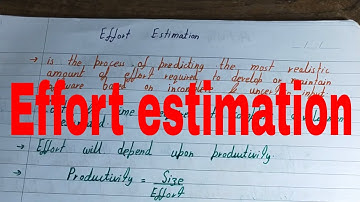 Effort Estimation
→ is the process of predicting the most realistic
amount of effort required to develop or maintain
software based on incomplete & uncertain input.
Effort estimation
→ Effort will depend upon productivity.
→ Productivity = Size
Effort